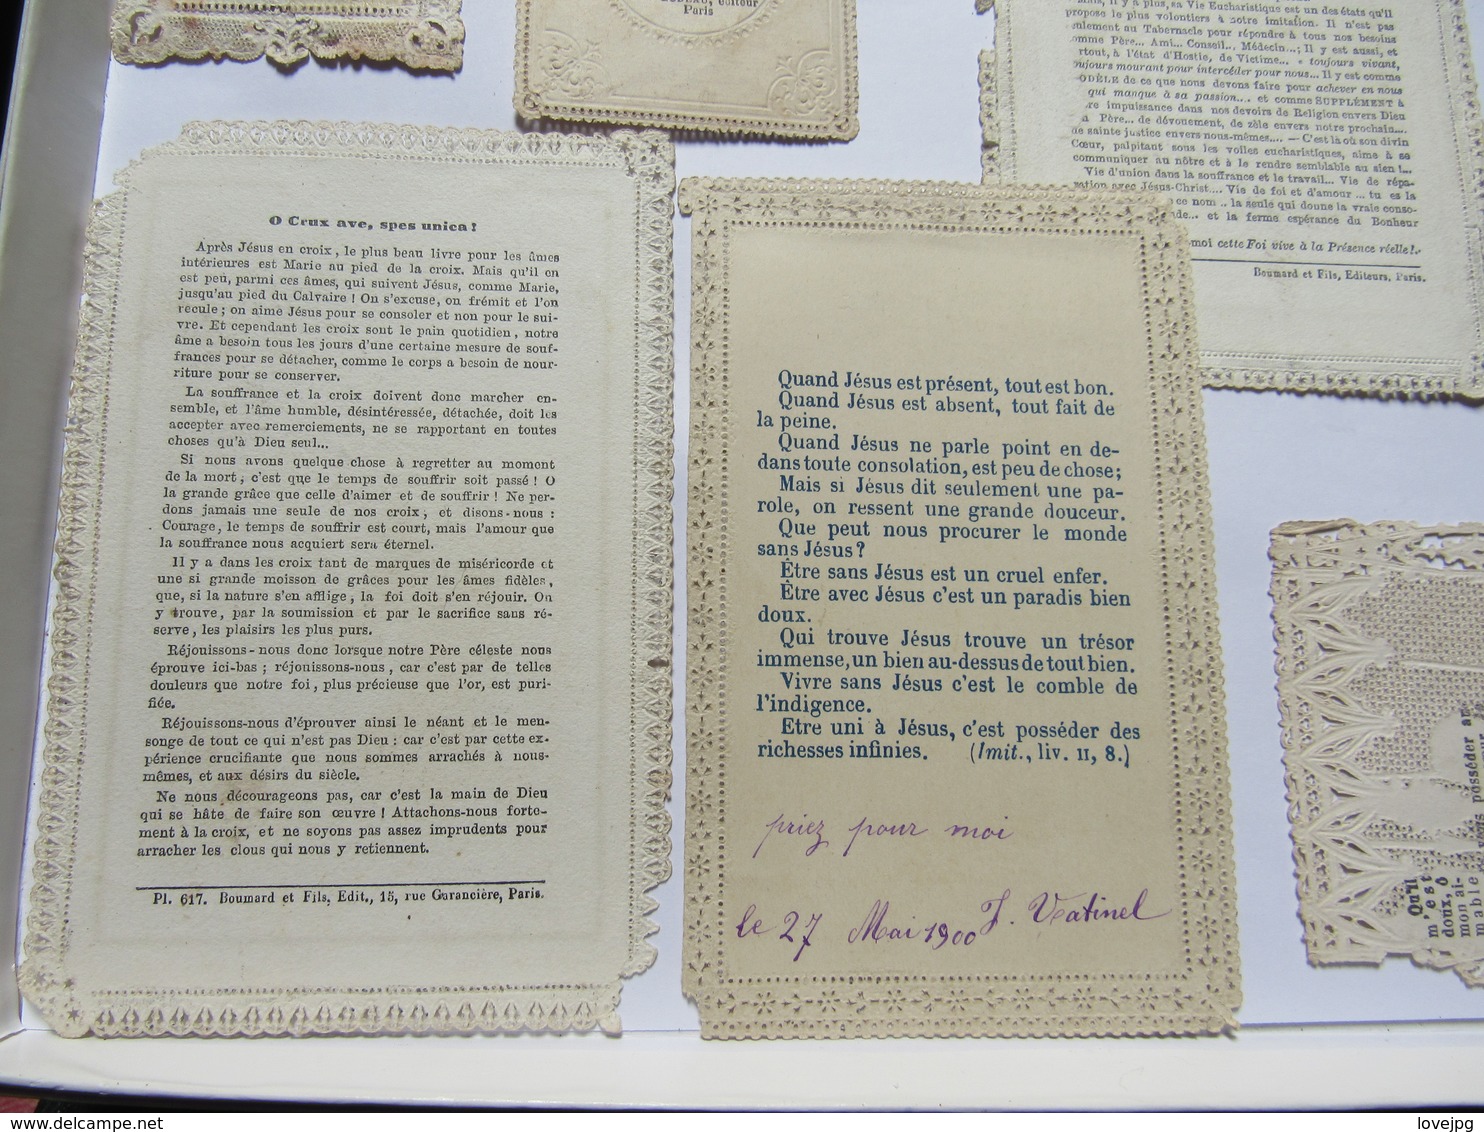 éditeur
Paris
mais, il y a plus, sa Vie Eucharistique est un des états qu'il
propose le plus volontiers à notre imitation. Il n'est pas
seulement au Tabernacle pour répondre à tous nos besoins
omme Père... Ami... Conseil.. Médecin...; Il y est aussi, et
rtout, à l'état d'Hostie, de Victime... « toujours vivant,
oujours mourant pour intercéder pour nous... Il y est comme
ODÈLE de ce que nous devons faire pour achever en nous
qui manque à sa passion... et comme SUPPLÉMENT à
re impuissance dans nos devoirs de Religion envers Dieu
Père... de dévouement, de zèle envers notre prochain...
de sainte justice envers nous-mêmes.... — C'est là où son divin
Cœur, palpitant sous les voiles eucharistiques, aime à se
communiquer au nôtre et à le rendre semblable au sien !...
Vie d'union dans la souffrance et le travail... Vie de répa-
ration avec Jésus-Christ.... Vie de foi et d'amour ... tu es la
ce nom .. la seule qui donne la vraie conso-
de... et la ferme espérance du Bonheur
moi cette Foi vive à la Présence réelle!..
Boumard et Fils, Editeurs, Paris.
O Crux ave, spes unica !
Après Jésus en croix, le plus beau livre pour les âmes
intérieures est Marie au pied de la croix. Mais qu'il en
est peu, parmi ces âmes, qui suivent Jésus, comme Marie,
jusqu'au pied du Calvaire ! On s'excuse, on frémit et l'on
recule ; on aime Jésus pour se consoler et non pour le sui-
vre. Et cependant les croix sont le pain quotidien, notre
âme a besoin tous les jours d'une certaine mesure de souf-
frances pour se détacher, comme le corps a besoin de nour-
riture pour se conserver.
La souffrance et la croix doivent donc marcher en-
semble, et l'âme humble, désintéressée, détachée, doit les
accepter avec remerciements, ne se rapportant en toutes
choses qu'à Dieu seul...
Si nous avons quelque chose à regretter au moment
de la mort, c'est que le temps de souffrir soit passé ! O
la grande grâce que celle d'aimer et de souffrir ! Ne per-
dons jamais une seule de nos croix, et disons-nous :
Courage, le temps de souffrir est court, mais l'amour que
la souffrance nous acquiert sera éternel.
Il y a dans les croix tant de marques de miséricorde et
une si grande moisson de grâces pour les âmes fidèles,
que, si la nature s'en afflige, la foi doit s'en réjouir. On
y trouve, par la soumission et par le sacrifice sans ré-
serve, les plaisirs les plus purs.
Réjouissons-nous donc lorsque notre Père céleste nous
éprouve ici-bas ; réjouissons-nous, car c'est par de telles
douleurs que notre foi, plus précieuse que l'or, est puri-
fiée.
Réjouissons-nous d'éprouver ainsi le néant et le men-
songe de tout ce qui n'est pas Dieu : car c'est par cette ex-
périence crucifiante que nous sommes arrachés à nous-
mêmes, et aux désirs du siècle.
Ne nous décourageons pas, car c'est la main de Dieu
qui se hâte de faire son œuvre ! Attachons-nous forte-
ment à la croix, et ne soyons pas assez imprudents pour
arracher les clous qui nous y retiennent.
Pl. 617. Boumard et Fils, Edit., 15, rue Garancière, Paris.
Quand Jésus est présent, tout est bon.
Quand Jésus est absent, tout fait de
la peine.
Quand Jésus ne parle point en de-
dans toute consolation, est peu de chose;
Mais si Jésus dit seulement une pa-
role, on ressent une grande douceur.
Que peut nous procurer le monde
sans Jésus?
Être sans Jésus est un cruel enfer.
Être avec Jésus c'est un paradis bien
doux.
Qui trouve Jésus trouve un trésor
immense, un bien au-dessus de tout bien.
Vivre sans Jésus c'est le comble de
l'indigence.
Etre uni à Jésus, c'est posséder des
richesses infinies. (Imit., liv. II, 8.)
priez pour moi
le 27 Mai 1900 J. Vatinel
Qu'il
m'est
doux, ô
mon ai-
mable
posséder
www.delcampe.net
lovejpg